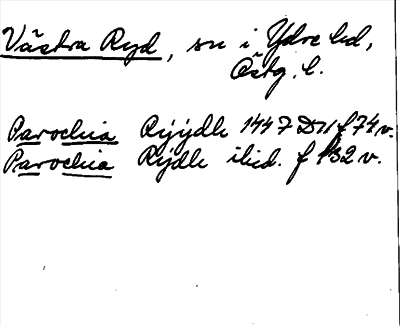 Västra Ryd, sn i Ydre hd,
Östg. l.
Parochia Rÿÿdh 1447 D11 f 74 v.
Parochia Rÿdh ibid. f 132 v.